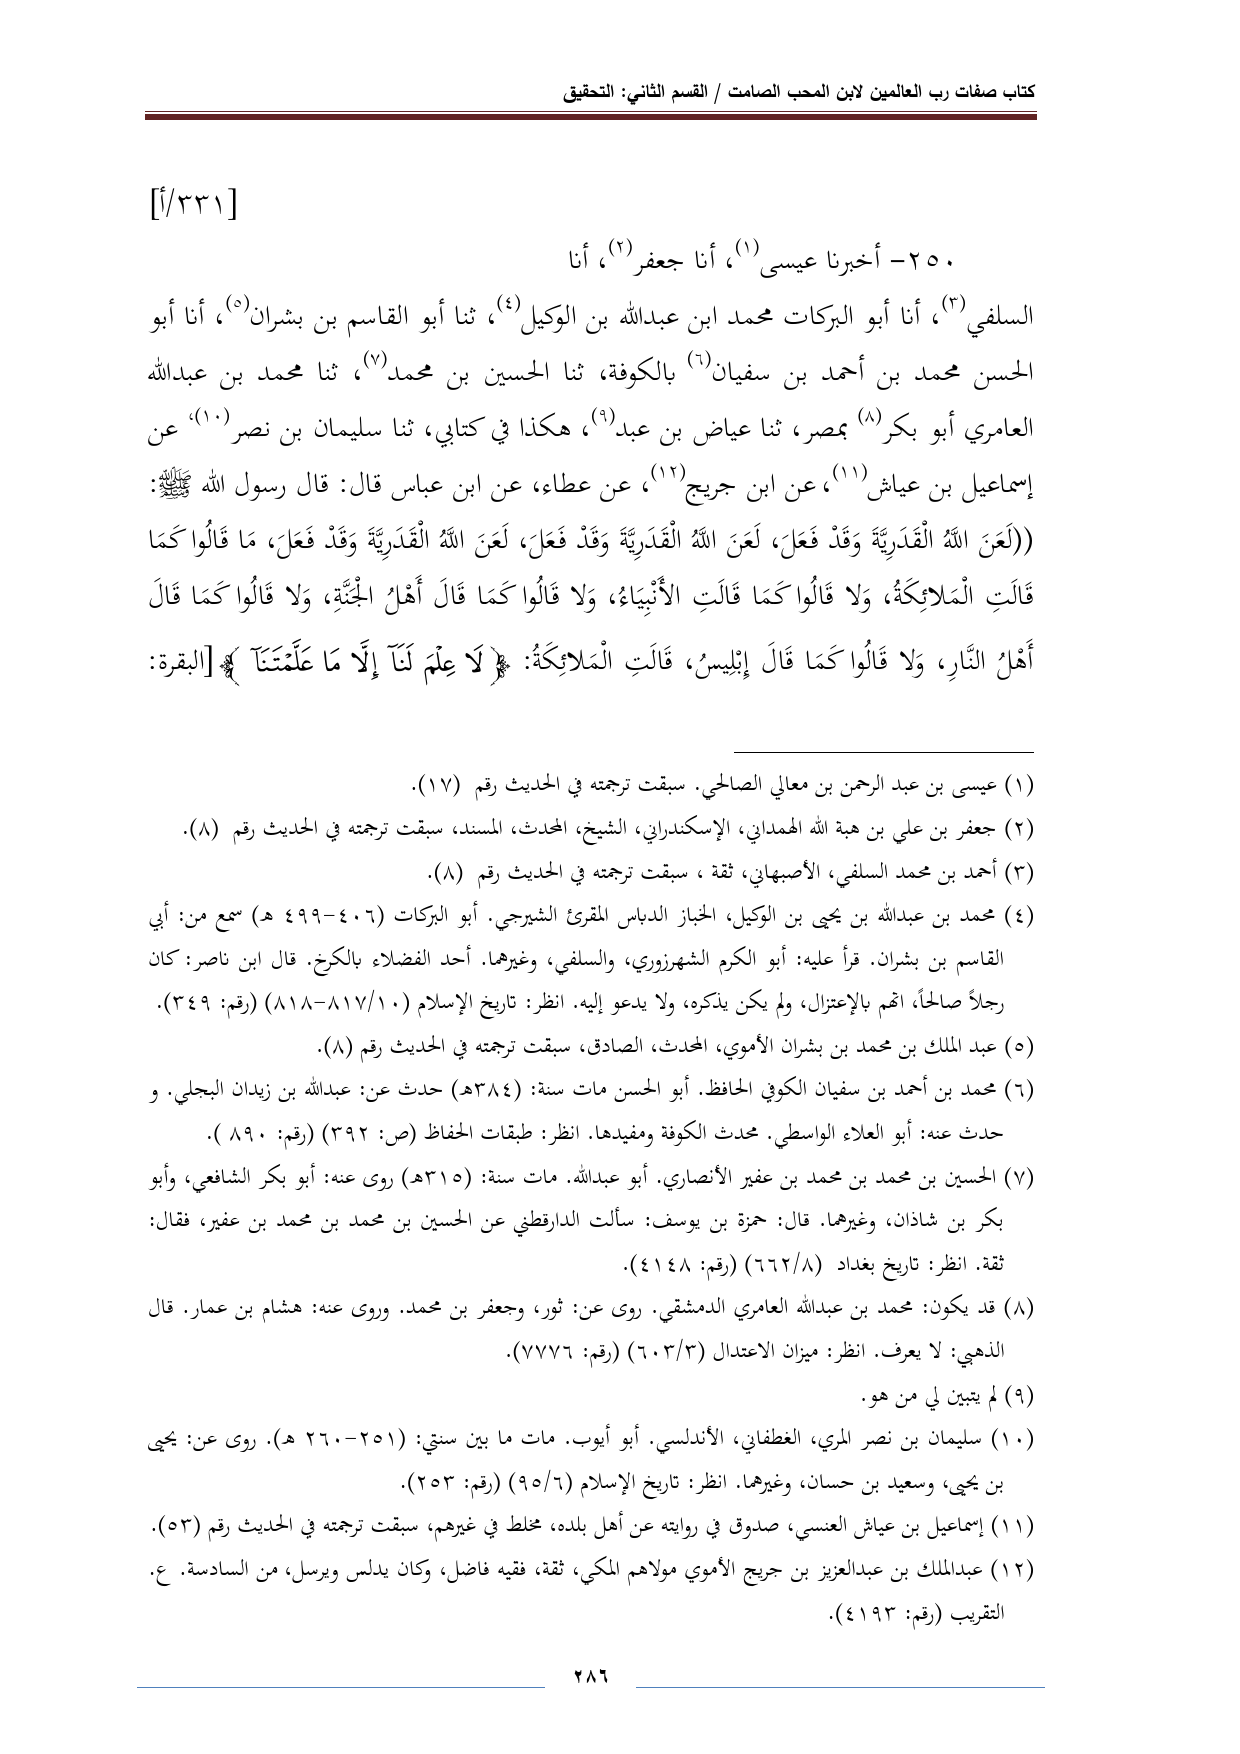 كتاب صفات رب العالمين لابن المحب الصامت / القسم الثاني: التحقيق
[٣٣١/أ]
٢٥٠- أخبرنا عيسى(١)، أنا جعفر(٢)، أنا
السلفي(٣)، أنا أبو البركات محمد ابن عبدالله بن الوكيل(٤)، ثنا أبو القاسم بن بشران(٥)، أنا أبو
الحسن محمد بن أحمد بن سفيان(٦) بالكوفة، ثنا الحسين بن محمد(٧)، ثنا محمد بن عبدالله
العامري أبو بكر(٨) بمصر، ثنا عياض بن عبد(٩)، هكذا في كتابي، ثنا سليمان بن نصر(١٠)، عن
إسماعيل بن عياش(١١)، عن ابن جريج(١٢)، عن عطاء، عن ابن عباس قال: قال رسول الله ﷺ:
((لَعَنَ اللَّهُ الْقَدَرِيَّةَ وَقَدْ فَعَلَ، لَعَنَ اللَّهُ الْقَدَرِيَّةَ وَقَدْ فَعَلَ، لَعَنَ اللَّهُ الْقَدَرِيَّةَ وَقَدْ فَعَلَ، مَا قَالُوا كَمَا
قَالَتِ الْمَلائِكَةُ، وَلا قَالُوا كَمَا قَالَتِ الأَنْبِيَاءُ، وَلا قَالُوا كَمَا قَالَ أَهْلُ الجَنَّةِ، وَلا قَالُوا كَمَا قَالَ
أَهْلُ النَّارِ، وَلا قَالُوا كَمَا قَالَ إِبْلِيسُ، قَالَتِ الْمَلائِكَةُ: ﴿ لَا عِلْمَ لَنَآ إِلَّا مَا عَلَّمْتَنَآ ﴾[البقرة:
(١) عيسى بن عبد الرحمن بن معالي الصالحي. سبقت ترجمته في الحديث رقم (١٧).
(٢) جعفر بن علي بن هبة الله الهمداني، الإسكندراني، الشيخ، المحدث، المسند، سبقت ترجمته في الحديث رقم (٨).
(٣) أحمد بن محمد السلفي، الأصبهاني، ثقة ، سبقت ترجمته في الحديث رقم (٨).
(٤) محمد بن عبدالله بن يحيى بن الوكيل، الخباز الدباس المقرئ الشيرجي. أبو البركات (٤٠٦-٤٩٩ هـ) سمع من: أبي
القاسم بن بشران. قرأ عليه: أبو الكرم الشهرزوري، والسلفي، وغيرهما. أحد الفضلاء بالكرخ. قال ابن ناصر: كان
رجلاً صالحاً، اتهم بالإعتزال، ولم يكن يذكره، ولا يدعو إليه. انظر: تاريخ الإسلام (٨١٧/١٠-٨١٨) (رقم: ٣٤٩).
(٥) عبد الملك بن محمد بن بشران الأموي، المحدث، الصادق، سبقت ترجمته في الحديث رقم (٨).
(٦) محمد بن أحمد بن سفيان الكوفي الحافظ. أبو الحسن مات سنة: (٣٨٤هـ) حدث عن: عبدالله بن زيدان البجلي. و
حدث عنه: أبو العلاء الواسطي. محدث الكوفة ومفيدها. انظر: طبقات الحفاظ (ص: ٣٩٢) (رقم: ٨٩٠ ).
(٧) الحسين بن محمد بن محمد بن عفير الأنصاري. أبو عبدالله. مات سنة: (٣١٥هـ) روى عنه: أبو بكر الشافعي، وأبو
بكر بن شاذان، وغيرهما. قال: حمزة بن يوسف: سألت الدارقطني عن الحسين بن محمد بن محمد بن عفير، فقال:
ثقة. انظر: تاريخ بغداد (٦٦٢/٨) (رقم: ٤١٤٨).
(٨) قد يكون: محمد بن عبدالله العامري الدمشقي. روى عن: ثور، وجعفر بن محمد. وروى عنه: هشام بن عمار. قال
الذهبي: لا يعرف. انظر: ميزان الاعتدال (٦٠٣/٣) (رقم: ٧٧٧٦).
(٩) لم يتبين لي من هو.
(١٠) سليمان بن نصر المري، الغطفاني، الأندلسي. أبو أيوب. مات ما بين سنتي: (٢٥١-٢٦٠ هـ). روى عن: يحيى
بن يحيى، وسعيد بن حسان، وغيرهما. انظر: تاريخ الإسلام (٩٥/٦) (رقم: ٢٥٣).
(١١) إسماعيل بن عياش العنسي، صدوق في روايته عن أهل بلده، مخلط في غيرهم، سبقت ترجمته في الحديث رقم (٥٣).
(١٢) عبدالملك بن عبدالعزيز بن جريج الأموي مولاهم المكي، ثقة، فقيه فاضل، وكان يدلس ويرسل، من السادسة. ع.
التقريب (رقم: ٤١٩٣).
٢٨٦